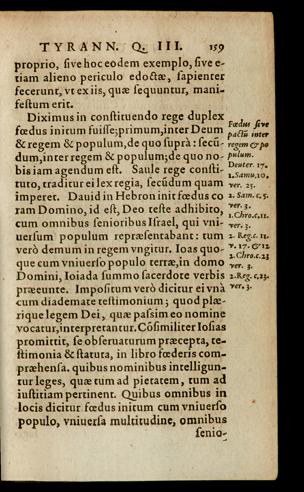 TYRANN. Q. III. 159
proprio, sive hoc eodem exemplo, sive e-
tiam alieno periculo edoctæ, sapienter
fecerunt, vt ex iis, quæ sequuntur, mani-
festum erit.
Diximus in constituendo rege duplex
fœdus initum fuisse; primum, inter Deum
& regem & populum, de quo suprà: secũ-
dum, inter regem & populum; de quo no-
bis iam agendum est. Saule rege consti-
tuto, traditur ei lex regia, secũdum quam
imperet. Dauid in Hebron init fœdus co
ram Domino, id est, Deo teste adhibito,
cum omnibus senioribus Israel, qui vni-
uersum populum repræsentabant: tum
verò demum in regem vngitur. Ioas quo-
que cum vniuerso populo terræ, in domo
Domini, Ioiada summo sacerdote verbis
præeunte. Impositum verò dicitur ei vnà
cum diademate testimonium; quod plæ-
rique legem Dei, quæ passim eo nomine
vocatur, interpretantur. Cõsimiliter Iosias
promittit, se obseruaturum præcepta, te-
stimonia & statuta, in libro fœderis com-
præhensa. quibus nominibus intelligun-
tur leges, quæ tum ad pietatem, tum ad
iustitiam pertinent. Quibus omnibus in
locis dicitur fœdus initum cum vniuerso
populo, vniuersa multitudine, omnibus
senio-
Fœdus sive
pactũ inter
regem & po
pulum.
Deuter. 17.
1. Samu. 10.
ver. 25.
2. Sam. c. 5.
ver. 3.
1. Chro. c. 11.
ver. 3.
2. Reg. c. 11.
v. 17. & 12
2. Chro. c. 23
ver. 3.
2. Reg. c. 23.
ver. 3.